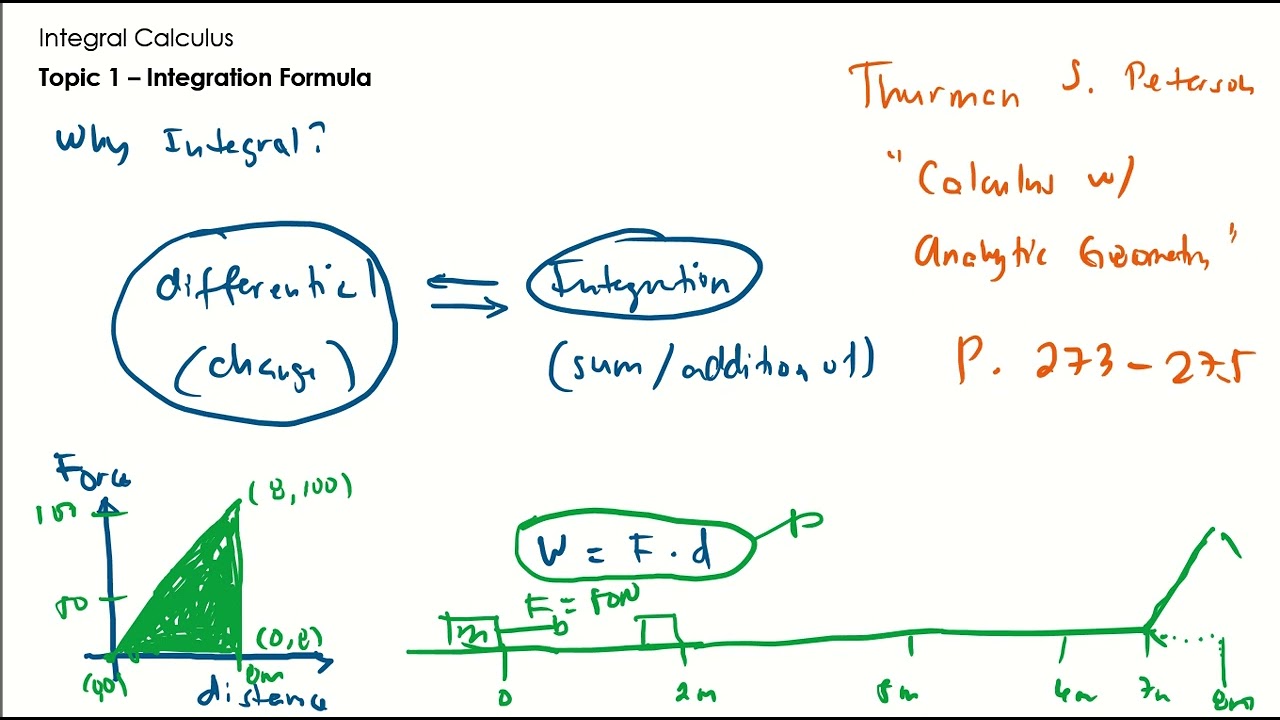 Integral Calculus
Topic 1 – Integration Formula
Why Integral?
Thurman S. Peterson
"Calculus w/
Analytic Geometry"
P. 273 – 275
differential
(change)
Integration
(sum/addition of)
Force
(8,100)
100
50
(0,8)
8m
distance
W = F · d
F = 50N
m
0
2m
7m
8m